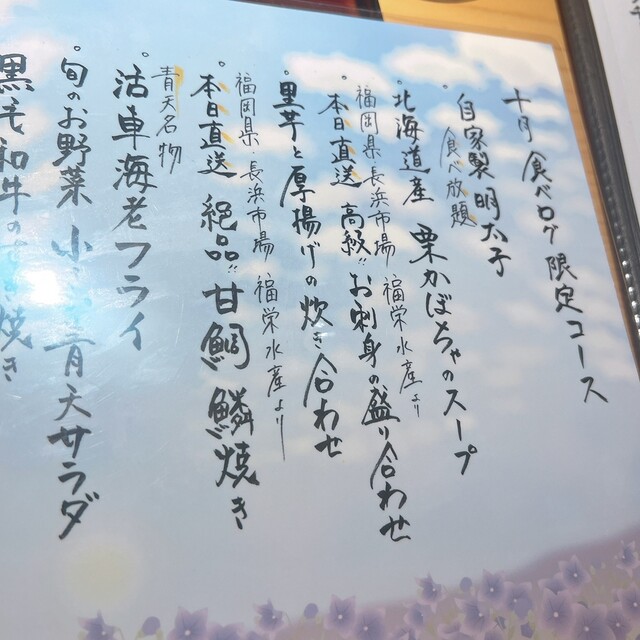 十月 食べログ 限定コース
自家製 明太子
食べ放題
北海道産 栗かぼちゃのスープ
福岡県 長浜市場 福栄水産より
本日直送 高級 お刺身の盛り合わせ
里芋と厚揚げの炊き合わせ
福岡県 長浜市場 福栄水産より
本日直送 絶品 甘鯛 鱗焼き
青天名物
活車海老フライ
旬のお野菜 青天サラダ
黒毛和牛の 焼き